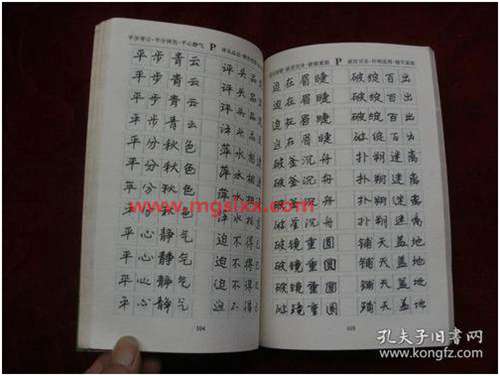 平步青云·平分秋色·平心静气 P
平步青云 评头品
平步青云 评头品
平步青云 评头品
平步青云 评头品
平分秋色 萍水相
平分秋色 萍水相
平分秋色 萍水相
平分秋色 萍水相
平心静气 迫不得已
平心静气 迫不得已
平心静气 迫不得已
平心静气 迫不得已
P 破绽百出·扑朔迷离·铺天盖地
迫在眉睫 破绽百出
迫在眉睫 破绽百出
迫在眉睫 破绽百出
迫在眉睫 破绽百出
破釜沉舟 扑朔迷离
破釜沉舟 扑朔迷离
破釜沉舟 扑朔迷离
破釜沉舟 扑朔迷离
破镜重圆 铺天盖地
破镜重圆 铺天盖地
破镜重圆 铺天盖地
破镜重圆 铺天盖地
www.mgslxx.com
孔夫子旧书网
www.kongfz.com